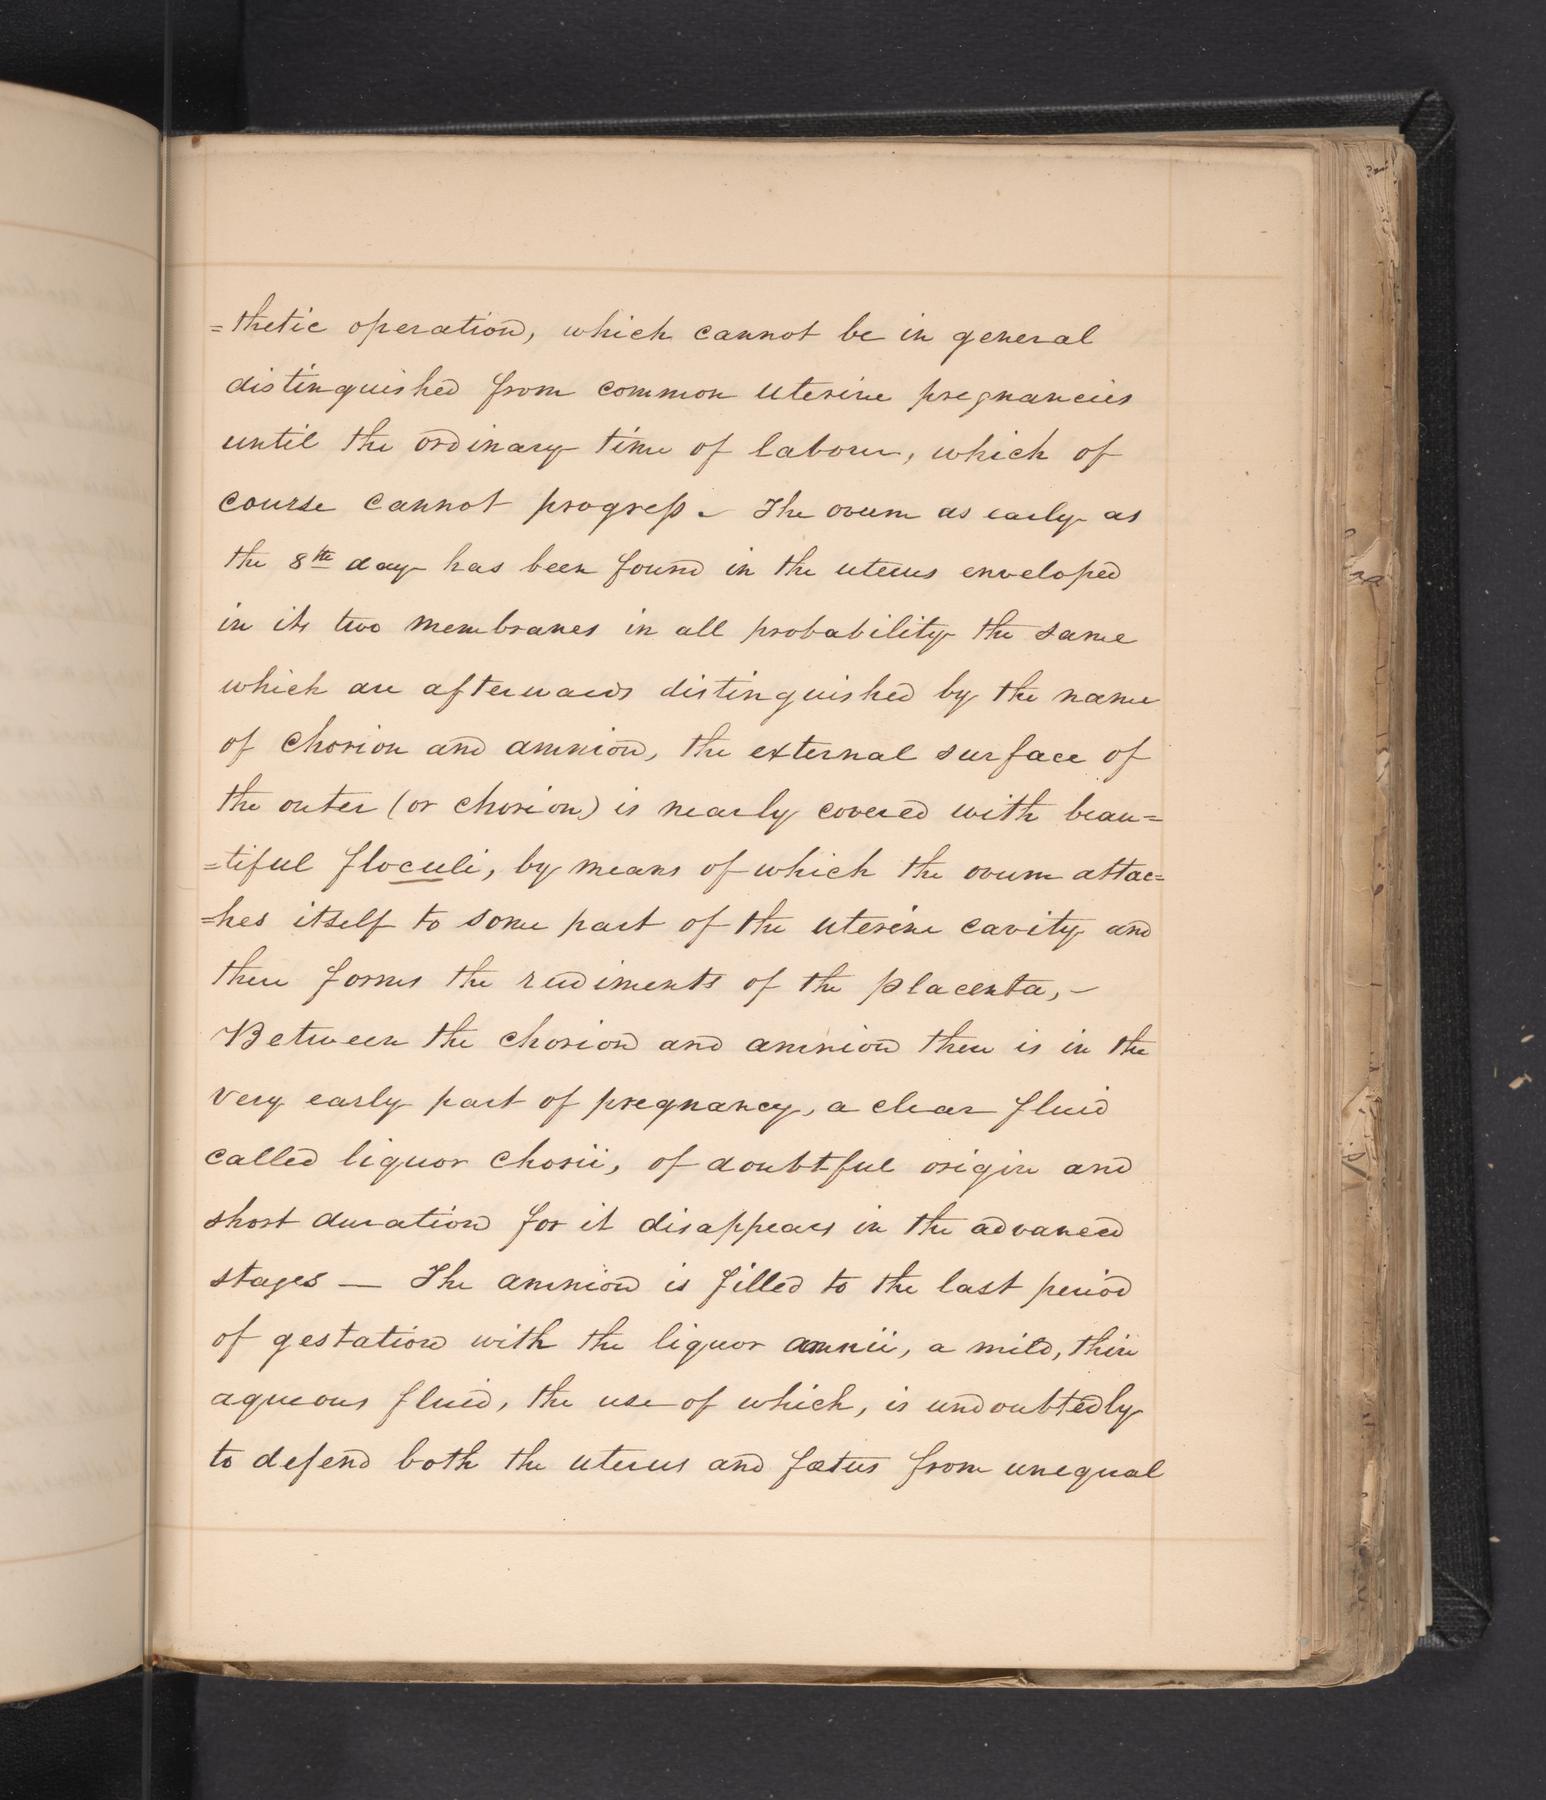 =thetic operation, which cannot be in general
distinguished from common uterine pregnancies
until the ordinary time of labour, which of
course cannot progress. The ovum as early as
the 8th day has been found in the uterus enveloped
in its two membranes in all probability the same
which are afterwards distinguished by the name
of chorion and amnion, the external surface of
the outer (or chorion) is nearly covered with beau=
=tiful floculi, by means of which the ovum attac=
=hes itself to some part of the uterine cavity and
there forms the rudiments of the placenta, –
Between the chorion and amnion there is in the
very early part of pregnancy, a clear fluid
called liquor chorii, of doubtful origin and
short duration for it disappears in the advanced
stages — The amnion is filled to the last period
of gestation with the liquor amnii, a mild, thin
aqueous fluid, the use of which, is undoubtedly
to defend both the uterus and fœtus from unequal